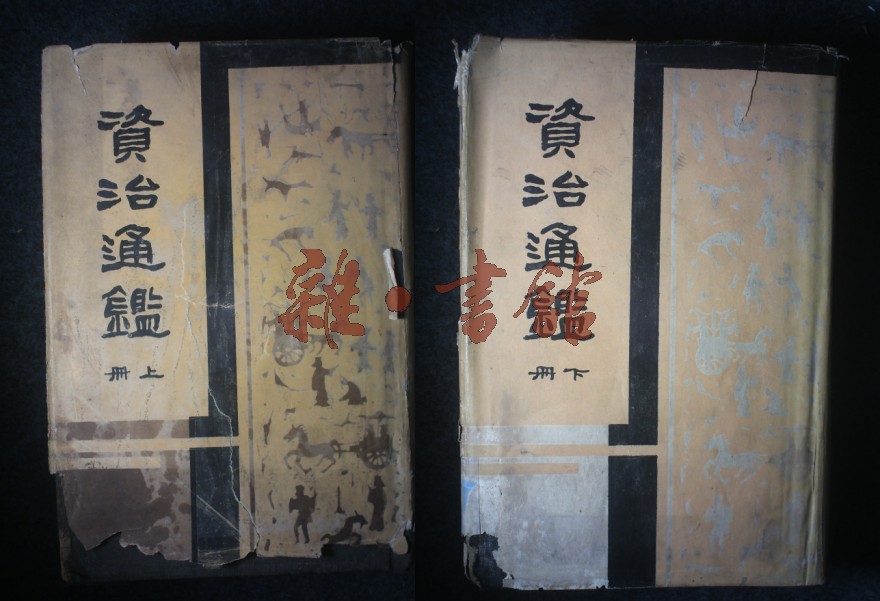 資治通鑑
上冊
資治通鑑
下冊
雜·書館